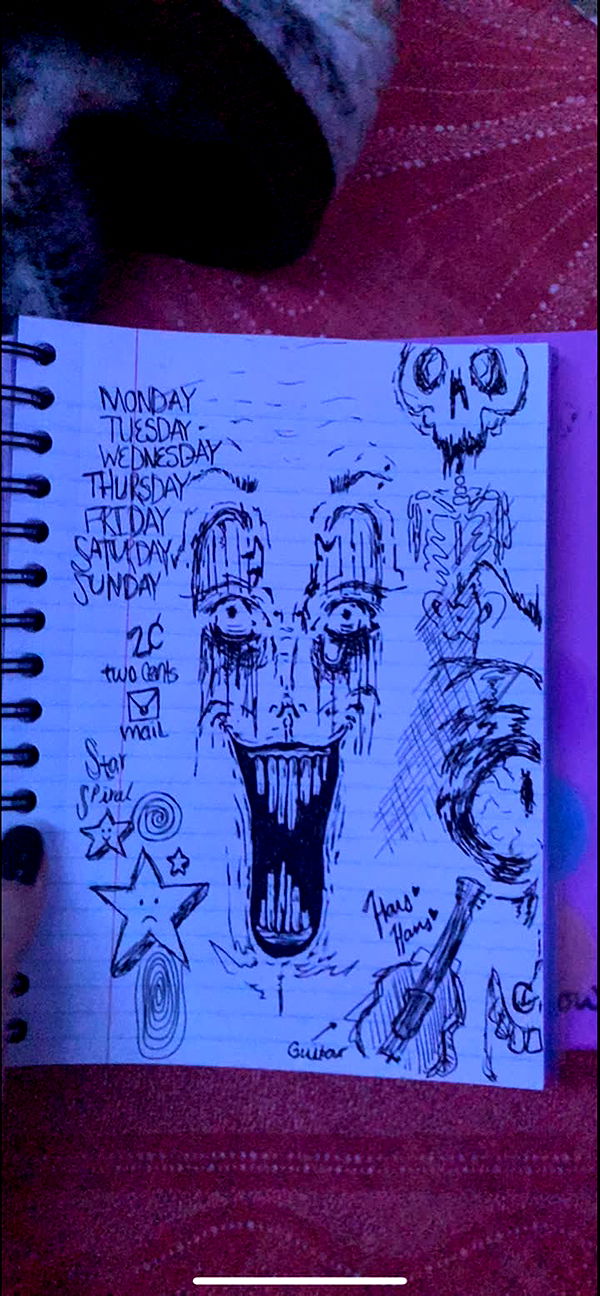 MONDAY
TUESDAY
WEDNESDAY
THURSDAY
FRIDAY
SATURDAY
SUNDAY
2¢
two cents
mail
Star
Spiral
Guitar